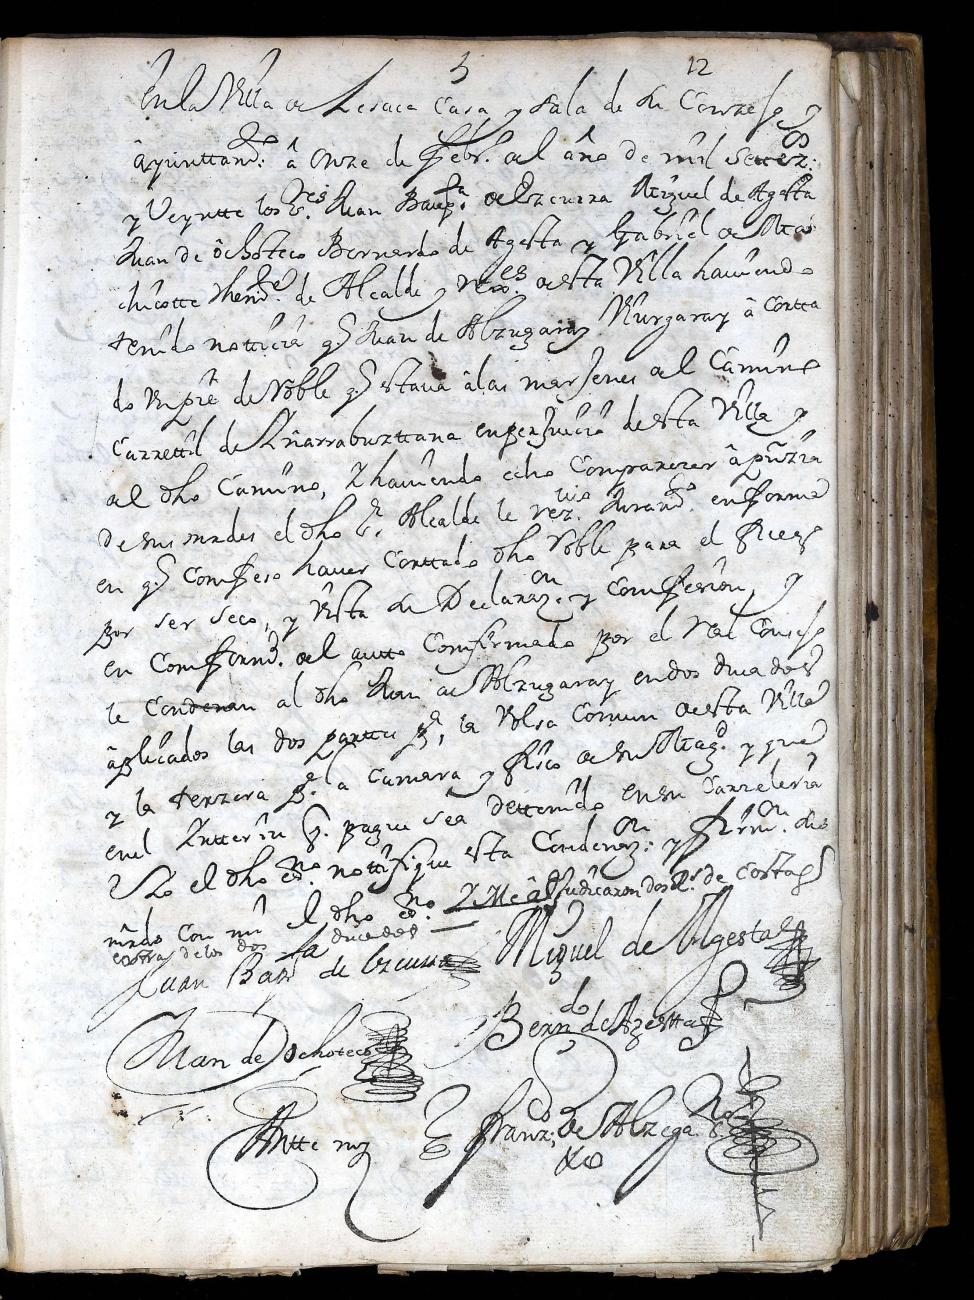 5 12
En la Villa de Lesaca Casa y Sala de su Conzejo y
âyunttamto. â Onze de Febro. del año de mil settezs.
y Veyntte los Sres. Juan Bauptta. de Ezcurra Miguel de Agesta
Juan de ôchoteco Bernardo de Agesta y Gabriel de
chicotte thente. de Alcalde y rexres. de esta Villa hauiendo
tenido notticia q Juan de Alzugaray Yturgaray â Cortta
do Un pie de Roble q estaua â las marjenes del Camino
Carrettil de Liñarrabuzttana en perjuicio de esta Villa y
del dho Camino, Y hauiendo echo Comparezer â prizia
de sus mrdes el dho Sr. Alcalde le reziuio Juramto. en forma
en q Comfeso hauer Corttado dho Roble para el fuego
por ser seco, y Vista su Declarazon. y Comfesion, y
en Comformd. del autto Comfirmado por el real Consejo
le Condenan al dho Juan de Alzugaray en dos ducados
âplicados las dos parttes pa, la Volsa Comun de esta Villa
y la terzera pa. la Camara y fisco de su Magd. y que
en el Ynterin q. pague sea dettenido en su Carzeleria
Y Yo el dho esno. nottifique esta Condenazon. y firmon. des
mrdes Con mi el dho esno. Y Me âdjudicaron dos Rs. de Costas
extra de los dos ducados
Juan Bapta de Ezcurra Miguel de Agesta
Juan de Ochoteco Berndo de Agestta
Antte my Franzco. de Alzega
esno